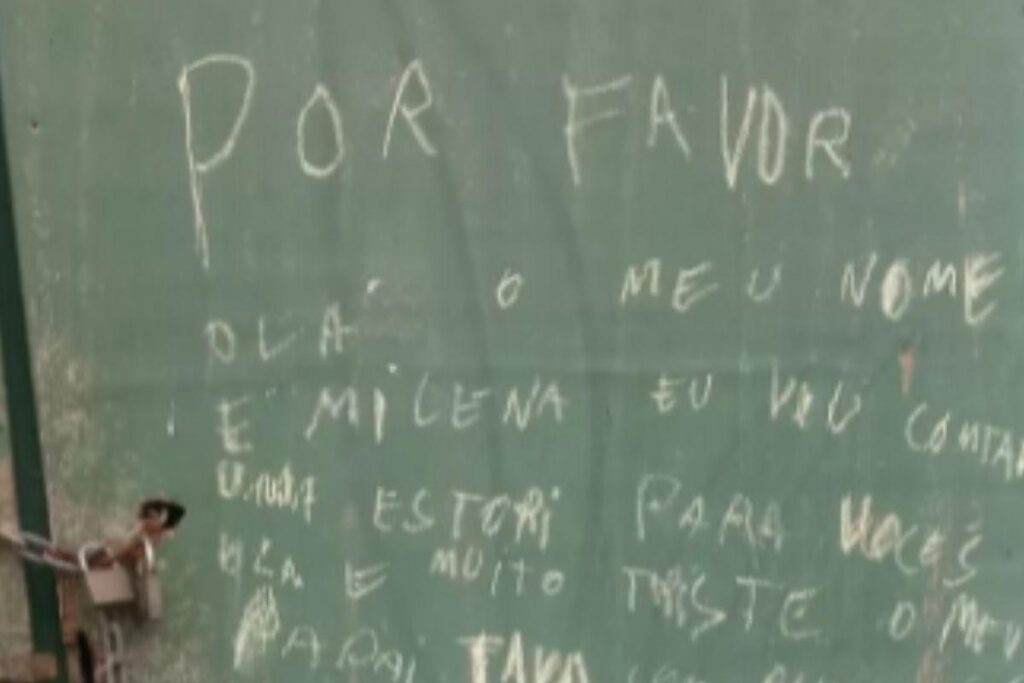 POR FAVOR
OLÁ O MEU NOME
E MILENA EU VOU CONTAR
UMA ESTORI PARA VOCES
ELA E MUITO TRISTE O MEU
PAPAI TAVA